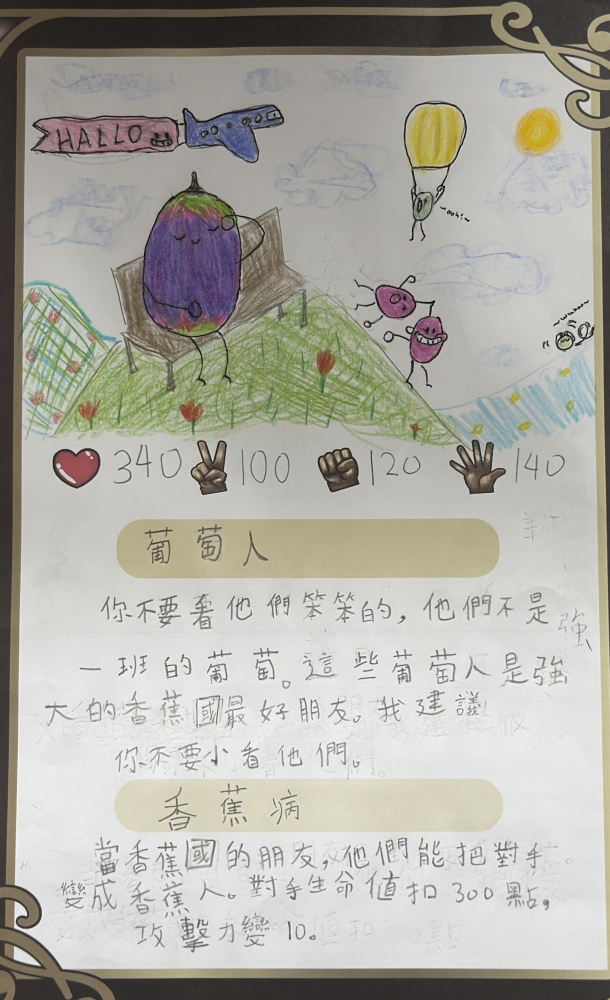 HALLO
~ooh!~
340 100 120 140
葡萄人
你不要看他們笨笨的，他們不是
一班的葡萄。這些葡萄人是強
強
大的香蕉國最好朋友。我建議
你不要小看他們。
香蕉病
當香蕉國的朋友，他們能把對手
變成香蕉人。對手生命值扣300點，
攻擊力變10。